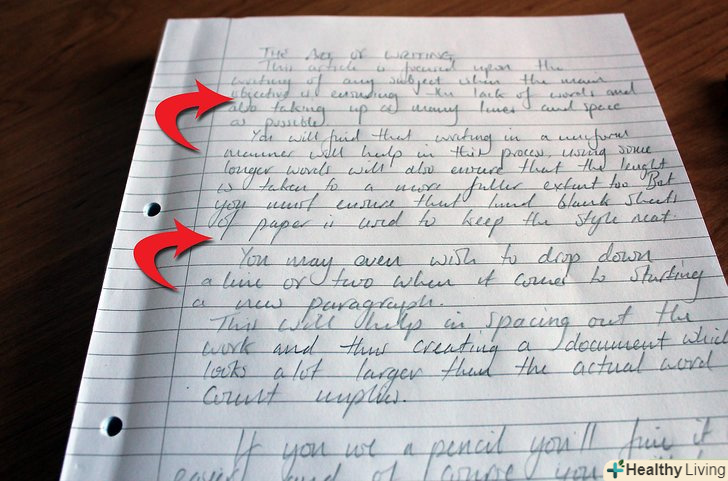 THE ART OF WRITING
This article is focused upon the
writing of any subject when the main
objective is ensuring the lack of words and
also taking up as many lines and space
as possible.
You will find that writing in a uniform
manner will help in this process, using some
longer words will also ensure that the lenght
is taken to a more fuller extent too. But
you must ensure that lined blank sheets
of paper is used to keep the style neat.
You may even wish to drop down
a line or two when it comes to starting
a new paragraph.
This will help in spacing out the
work and thus creating a document which
looks alot larger than the actual word
count implies.
If you use a pencil you'll find it
easier and of course you
Healthy Living